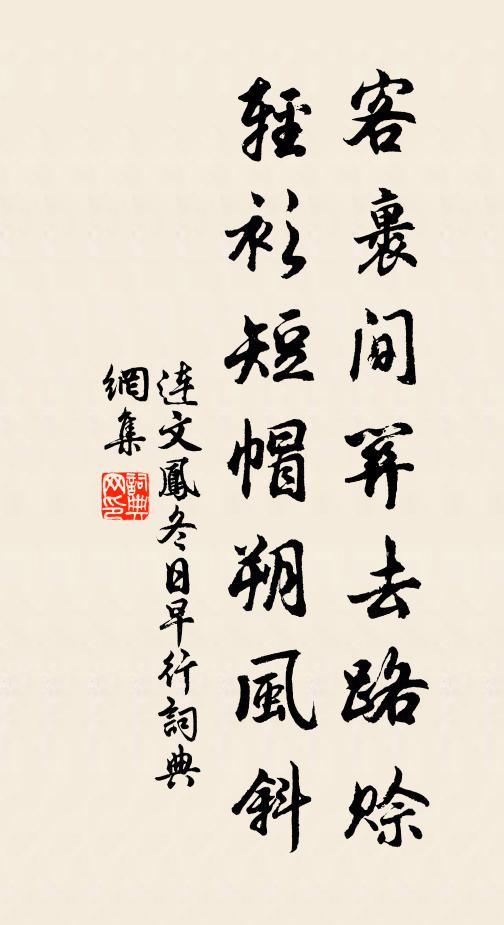 客裏间笄去路賒
輕衫短帽朔風斜
連文鳳冬日早行詞典
網集
詞典
网印